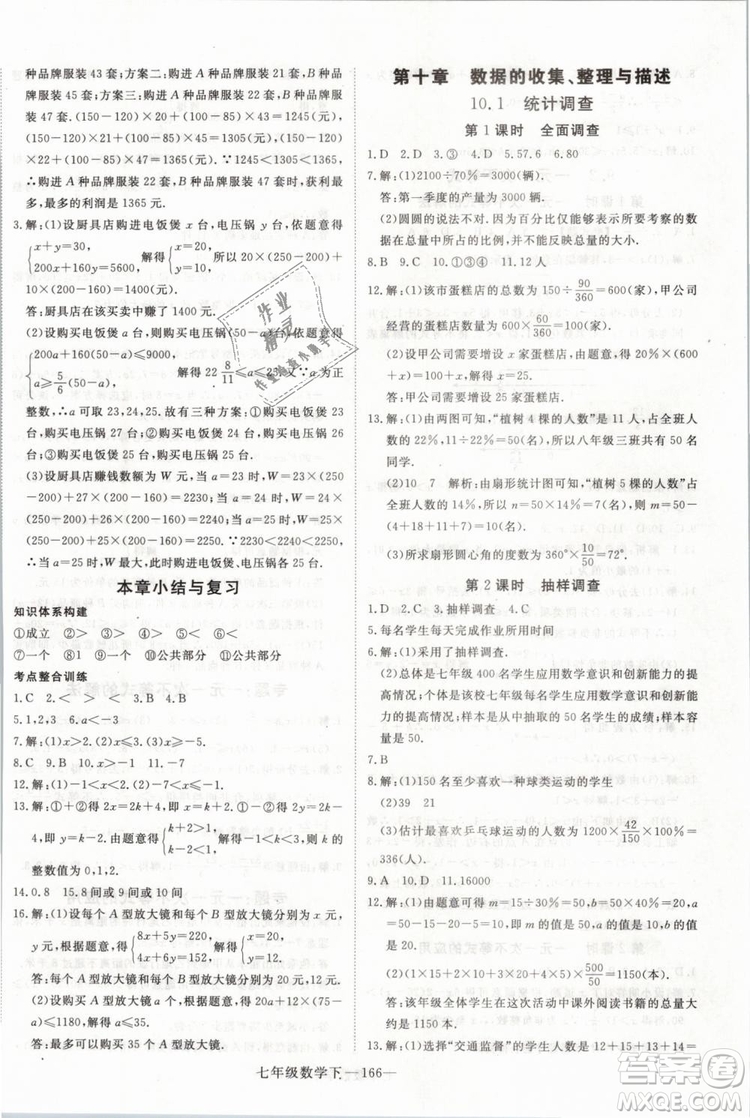 种品牌服装43套；方案二：购进A种品牌服装21套，B
种品牌服装44套；方案三：购进A种品牌服装22套，B
种品牌服装45套.(150−130)×20+(125−100)×43=
20×20+25×43=1475(元)，1475×(1−10%)−(150
+125)×(150−125)×2
(150−125)×21+(125−100)
×22+(150−125)×44=1365(元).∵1365>
∴购进A种品牌服装22套，B种品牌服装47套时，获利最
多，最多的利润是1365元.
3.解：(1)设厨具店购进电饭煲x台，电压锅y台，依题意得
{x+y=30,
200x+160y=5600, 解得{x=20,
y=10, 所以20×(250−200)+
10×(200−160)=1400(元).
答：厨具店在该买卖中赚了1400元.
(2)设购买电饭煲a台，则购买电压锅(50−a)台，依题意得
{200a+160(50−a)≤9000,
a≥5/6(50−a), 解得22 8/11≤a≤25.又∵a为
整数，∴a可取23,24,25.故有三种方案：①购买电饭煲23
台，购买电压锅27台；②购买电饭煲24台，购买电压锅26
台；③购买电饭煲25台，购买电压锅25台.
(3)设厨具店赚钱数额为W元，当a=23时，W=23×
(250−200)+27×(200−160)=2230；当a=24时，W=
24×(250−200)+26×(200−160)=2240；当a=25时，
W=25×(250−200)+25×(200−160)=2250；综上所
述，当a=25时，W最大，此时购买电饭煲、电压锅各25台.
本章小结与复习
知识体系构建
①成立 ②> ③> ④> ⑤< ⑥<
⑦一个 ⑧1 ⑨公共部分 ⑩公共部分
考点整合训练
1.C 2.A 3.B 4.B
5.1,2,3 6.a<−1
7.解：(1)x>2.(2)x≥3/2.
8.C 9.B 10.x>−1 11.−7
12.解：(1)−1<x≤4.(2)−2<x≤0.
13.解：①+②得2x=2k+4，即x=k+2，①−②得2y=2k−
4，即y=k−2.由题意得{k+2>1,
k−2≤1, 解得−1<k≤3，∴k的非正
整数值为0,1,2.
14.0.8 15.8间或9间或10间
16.解：(1)设每个A型放大镜和每个B型放大镜分别为x元，
y元，可得{8x+5y=220,
4x+6y=152, 解得{x=20,
y=12.
答：每个A型放大镜和每个B型放大镜分别为20元，12元.
(2)设购买A型放大镜a个，根据题意可得20a+12×(75−
a)≤1180，解得a≤35.
答：最多可以购买35个A型放大镜.
第十章 数据的收集、整理与描述
10.1 统计调查
第1课时 全面调查
1.D 2.D 3.③ 4.D 5.57.6 6.80
7.解：(1)2100÷70%=3000(辆).
答：第一季度的产量为3000辆.
(2)圆圆的说法不对.因为百分比仅能够表示所要考察的数
据在总量中所占的比例，并不能反映总量的大小.
8.B 9.D 10.①③④ 11.12人
12.解：(1)该市蛋糕店的总数为150÷90/360=600(家)，甲公司
经营的蛋糕店数量为600×60/360=100(家).
(2)设甲公司需要增设x家蛋糕店，由题意，得20%×(600
+x)=100+x，解得x=25.
答：甲公司需要增设25家蛋糕店.
13.解：(1)由两图可知，“植树4棵的人数”是11人，占全班人
数的22%，11÷22%=50(名)，所以八年级三班共有50名
同学.
(2)10 7 解析：由扇形统计图可知，“植树5棵的人数”占
全班人数的14%，所以n=50×14%=7(名)，m=50−
(4+18+11+7)=10(名).
(3)所求扇形圆心角的度数为360°×10/50=72°.
第2课时 抽样调查
1.D 2.C 3.抽样调查 4.C
5.每名学生每天完成作业所用时间
6.解：(1)采用了抽样调查.
(2)总体是七年级400名学生应用数学意识和创新能力的
提高情况；个体是该校七年级每名学生应用数学意识和创新
能力的提高情况；样本是从中抽取的50名学生的成绩；样本
容量是50.
7.B
8.解：(1)150名至少喜欢一种球类运动的学生
(2)39 21
(3)估计最喜欢乒乓球运动的人数为1200×42/150=
336(人).
9.A 10.D 11.16000
12.解：(1)∵被调查的学生人数m=15÷30%=50，∴a=
50−10−15−5=20.
(2)(1×10+2×15+3×20+4×5)×500/50=1150(本).
答：该年级全体学生在这次活动中课外阅读书籍的总量大
约是1150本.
13.解：(1)选择“交通监督”的人数是：200−(12+45+13+
七年级数学下—166—